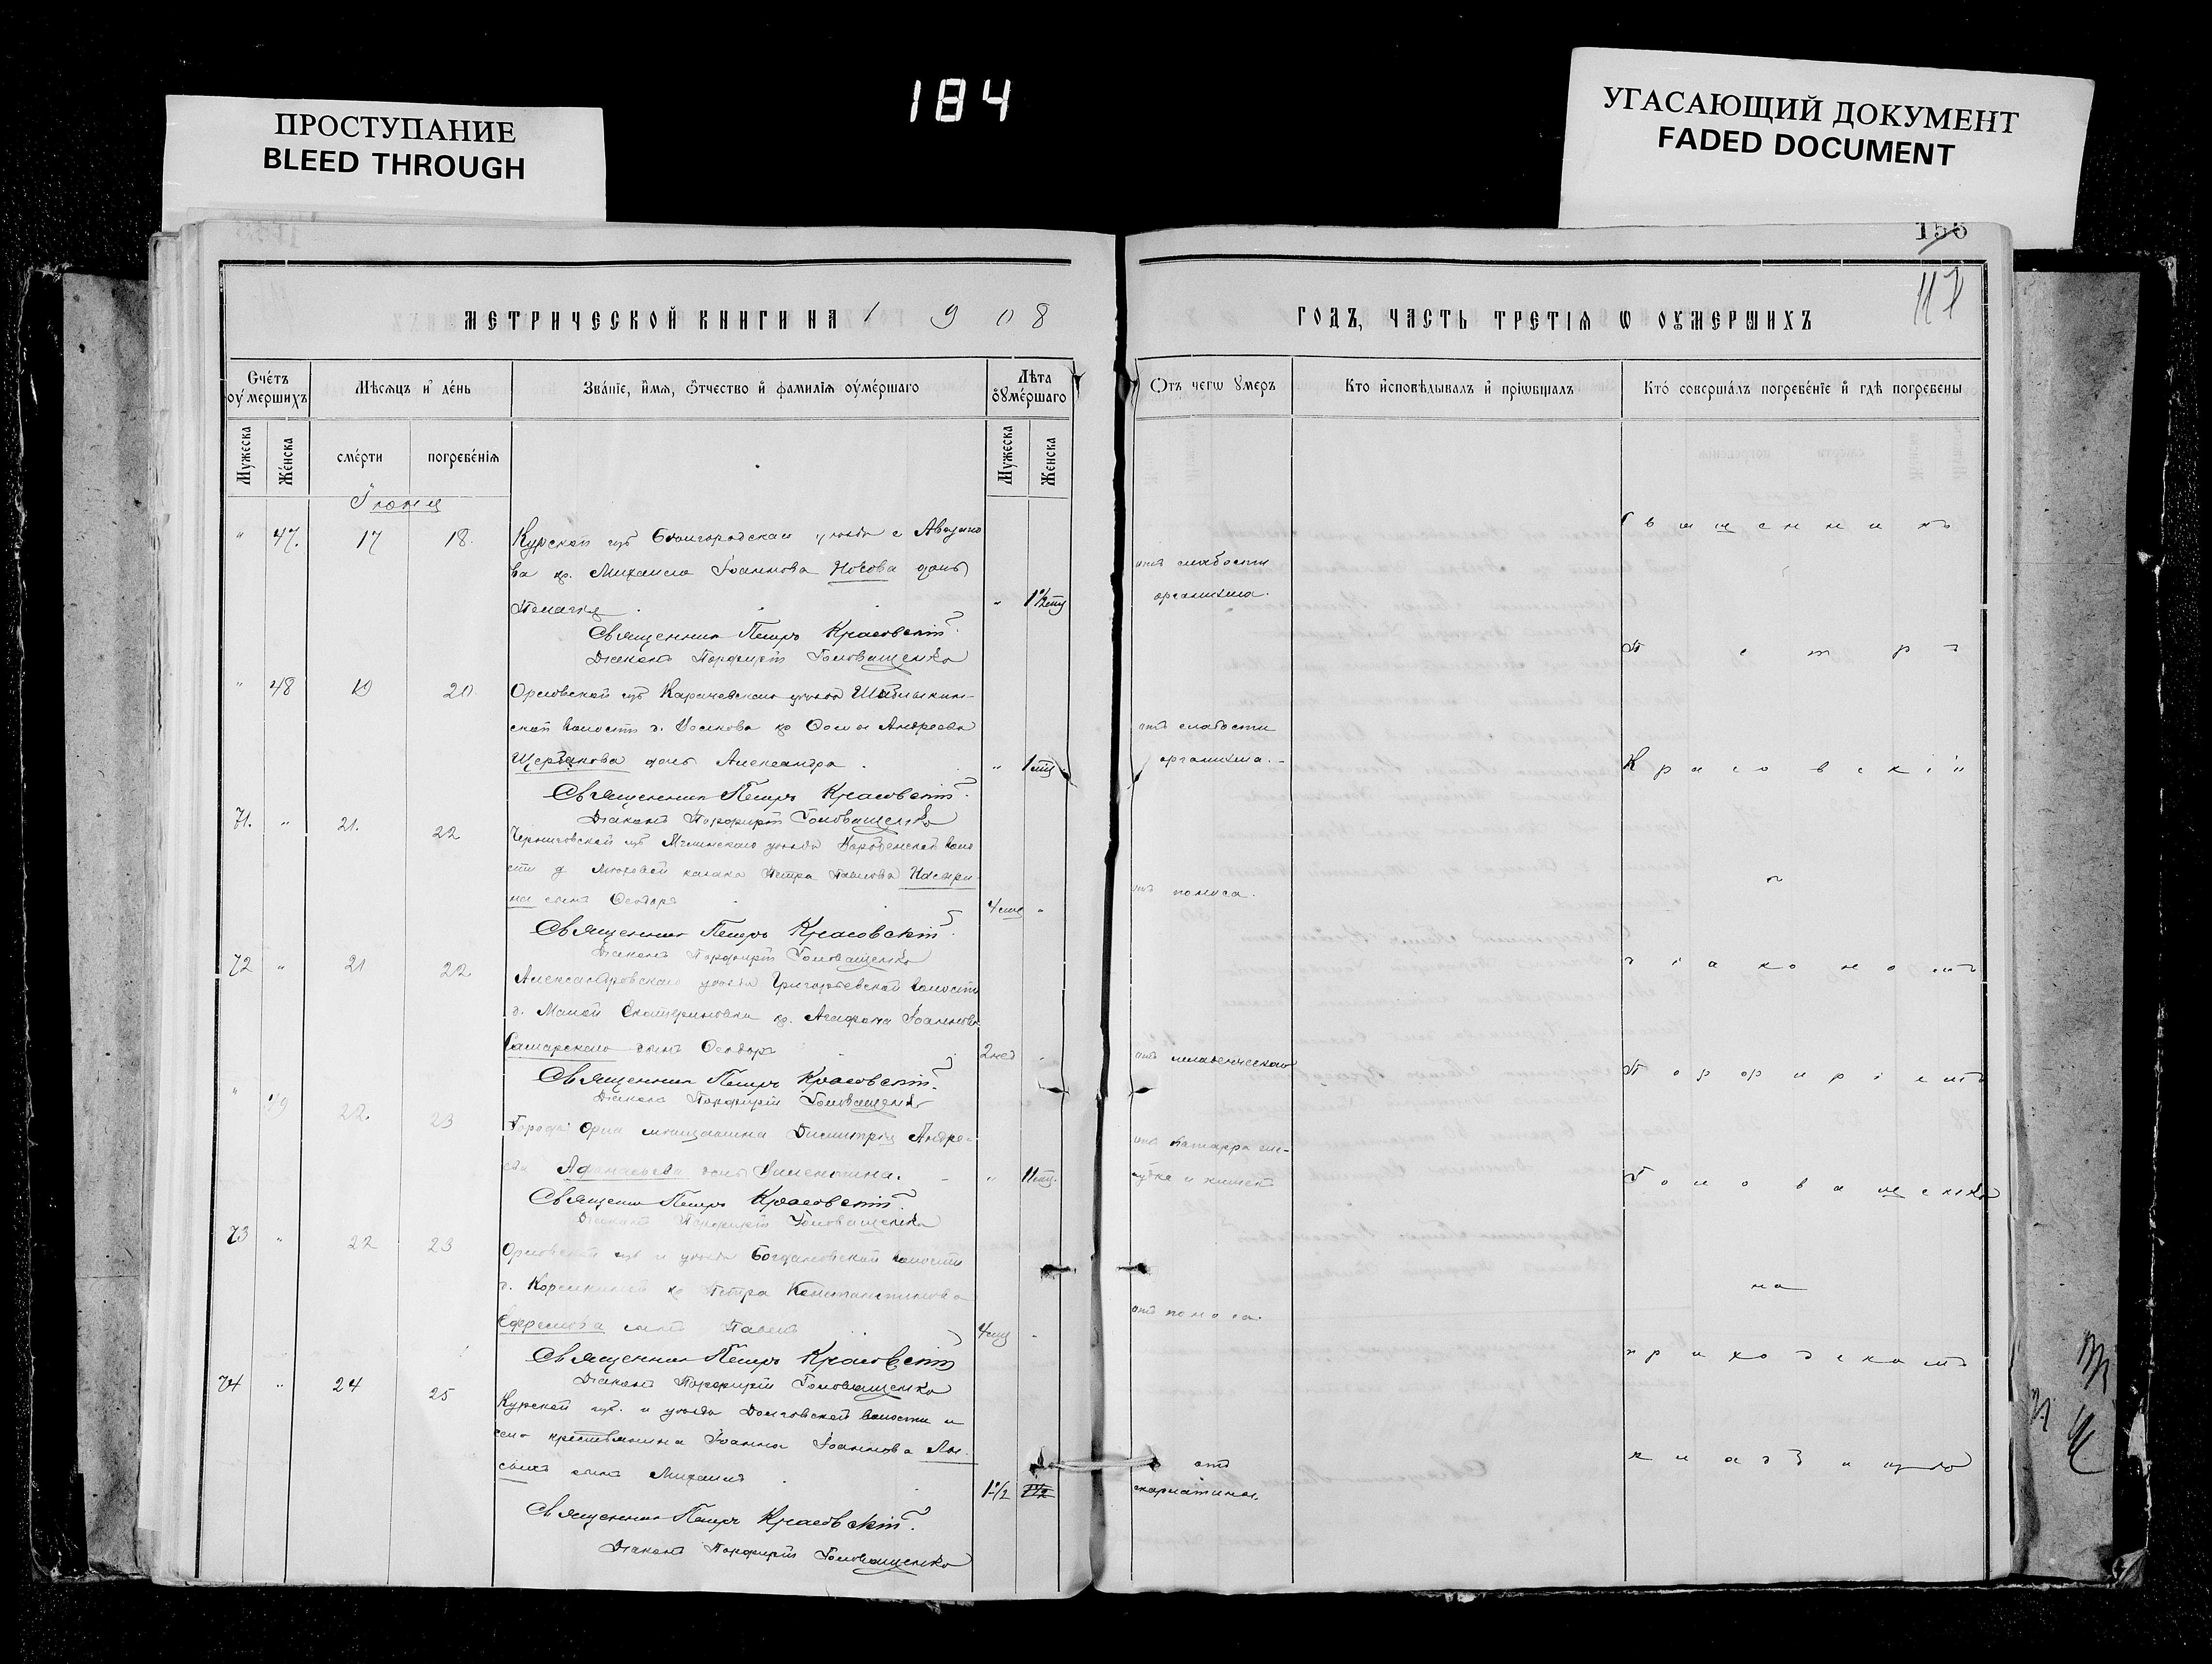 184
ПРОСТУПАНИЕ
BLEED THROUGH
УГАСАЮЩИЙ ДОКУМЕНТ
FADED DOCUMENT
156
117
МЕТРИЧЕСКОЙ КНИГИ НА 1908
ГОДЪ, ЧАСТЬ ТРЕТІѦ Ѡ ОУМЕРШИХЪ
Счетъ оумершихъ
Мѣсяцъ и день
Званіе, имя, отчество и фамилія оумершаго
Лѣта оумершаго
Отъ чегѡ умеръ
Кто исповѣдывалъ и пріѡбщалъ
Кто совершалъ погребеніе и гдѣ погребены
Мужеска
Женска
смерти
погребенія
Мужеска
Женска
Іюня
" 47. 17 18. Курской губ Бѣлгородскаго уѣзда с
кр. Михаила Іоаннова Носова дочь
Пелагія " 1½ мц отъ слабости
организма.
Священникъ Петръ Красовскій
Діаконъ Порфирій Головащенко
" 48 19 20 Орловской губ Карачевскаго уѣзда Шаблыкин-
ской волости д. кр Андреева
Щербакова дочь Александра " 1 мц отъ слабости
организма.
Священникъ Петръ Красовскій
Діаконъ Порфирій Головащенко
71. " 21. 22 Черниговской губ Мглинскаго уѣзда воло
сти д казака Петра Павлова
сынъ Ѳеодоръ 4 мц " отъ поноса.
Священникъ Петръ Красовскій
Діаконъ Порфирій Головащенко
72 " 21 22 Александровскаго уѣзда Григорьевской волости
д. Малой Екатериновки кр. Іоаннова
Самарскаго сынъ Ѳеодоръ 2 нед " отъ младенческаго
Священникъ Петръ Красовскій
Діаконъ Порфирій Головащенко
" 49 22. 23 Города Орла мѣщанина Димитрія Андре-
ева Афанасьева дочь Валентина. " 11 мц. отъ катарра же-
лудка и кишекъ
Священникъ Петръ Красовскій
Діаконъ Порфирій Головащенко
73 " 22 23 Орловской губ и уѣзда Богдановской волости
д. кр Петра Константинова
Ефремова сынъ Павелъ 4 мц " отъ поноса.
Священникъ Петръ Красовскій
Діаконъ Порфирій Головащенко
74 " 24 25 Курской губ. и уѣзда Долговской волости и
села крестьянина Іоанна Іоаннова Лы-
сыхъ сынъ Михаилъ 1½ отъ
скарлатины.
Священникъ Петръ Красовскій
Діаконъ Порфирій Головащенко
Священникъ
Петръ
Красовскій
съ
діакономъ
Порфиріемъ
Головащенко
на
приходскомъ
кладбищѣ